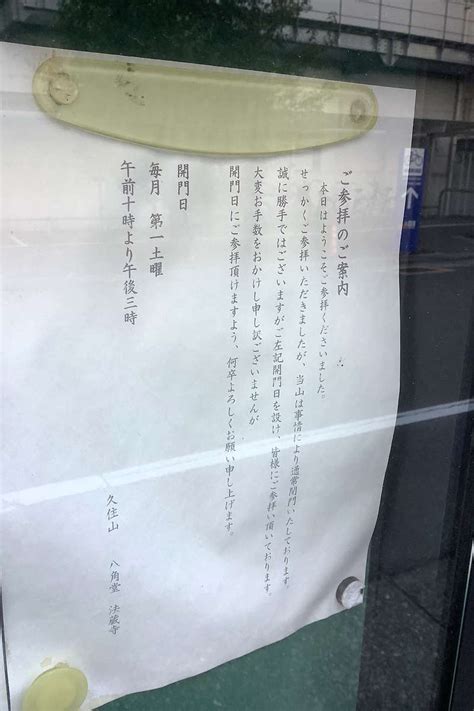 ご参拝のご案内
本日はようこそご参拝くださいました。
せっかくご参拝いただきましたが、当山は事情により通常閉門いたしております。
誠に勝手ではございますがご左記開門日を設け、皆様にご参拝い頂いております。
大変お手数をおかけし申し訳ございませんが
開門日にご参拝頂けますよう、何卒よろしくお願い申し上げます。
開門日
毎月　第一土曜
午前十時より午後三時
久住山　八角堂　法蔵寺